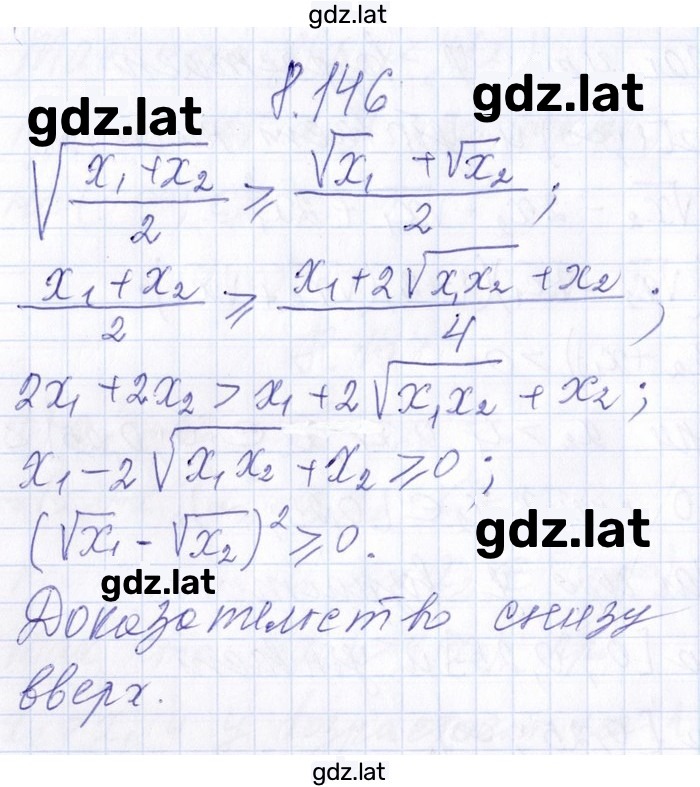 gdz.lat
8.146
gdz.lat gdz.lat
√((x₁+x₂)/2) ⩾ (√x₁ + √x₂)/2 ;
(x₁+x₂)/2 ⩾ (x₁+2√(x₁x₂)+x₂)/4 ;
2x₁+2x₂ > x₁+2√(x₁x₂)+x₂ ;
x₁-2√(x₁x₂)+x₂ ⩾ 0 ;
(√x₁ - √x₂)² ⩾ 0.
gdz.lat
gdz.lat
Доказательство снизу
вверх.
gdz.lat